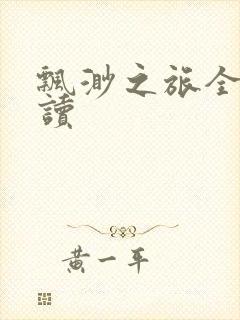 飄渺之旅全
讀
黃一平